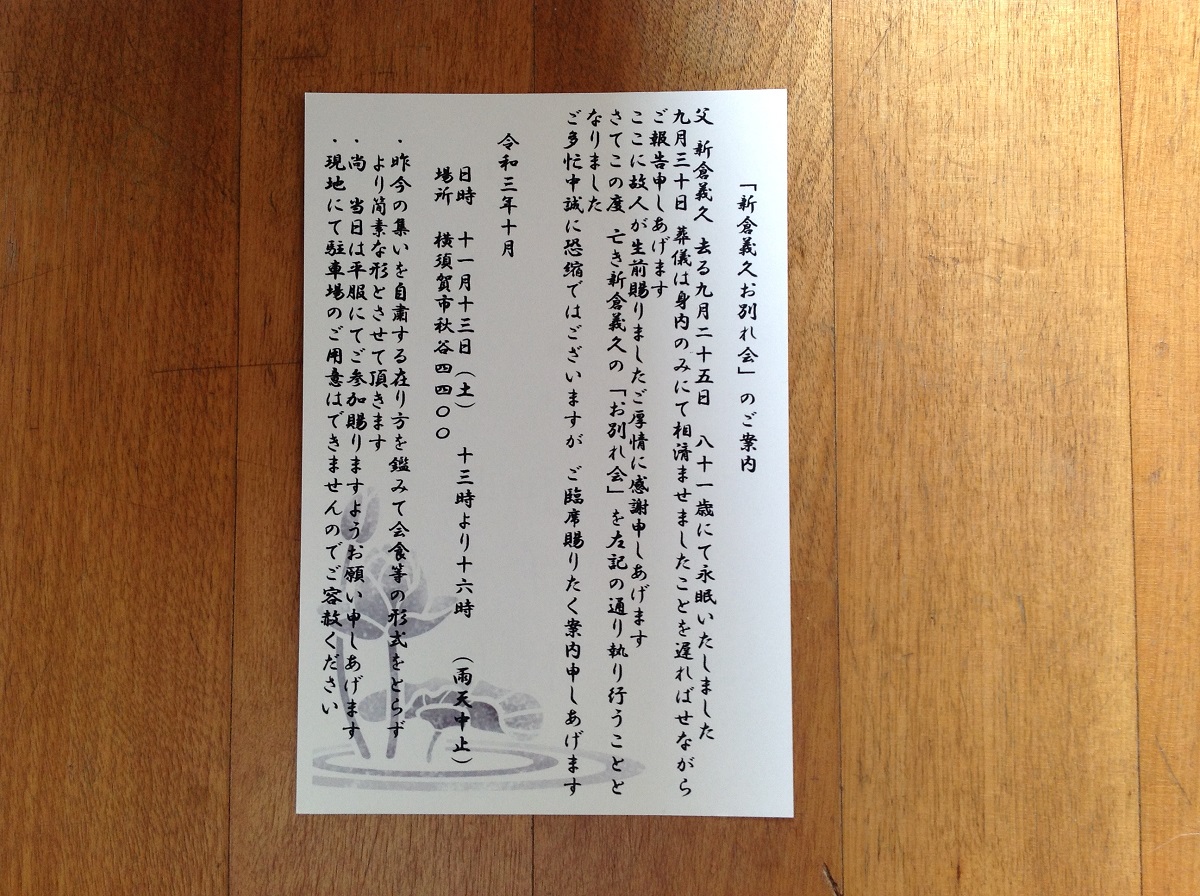 「新倉義久お別れ会」のご案内
父 新倉義久 去る九月二十五日 八十一歳にて永眠いたしました
九月三十日 葬儀は身内のみにて相済ませましたことを遅ればせながら
ご報告申しあげます
ここに故人が生前賜りましたご厚情に感謝申しあげます
さてこの度 亡き新倉義久の「お別れ会」を左記の通り執り行うことと
なりました
ご多忙中誠に恐縮ではございますが ご臨席賜りたく案内申しあげます
令和三年十月
日時 十一月十三日(土) 十三時より十六時 (雨天中止)
場所 横須賀市秋谷四四〇〇
・昨今の集いを自粛する在り方を鑑みて会食等の形式をとらず
より簡素な形とさせて頂きます
・尚 当日は平服にてご参加賜りますようお願い申しあげます
・現地にて駐車場のご用意はできませんのでご容赦ください